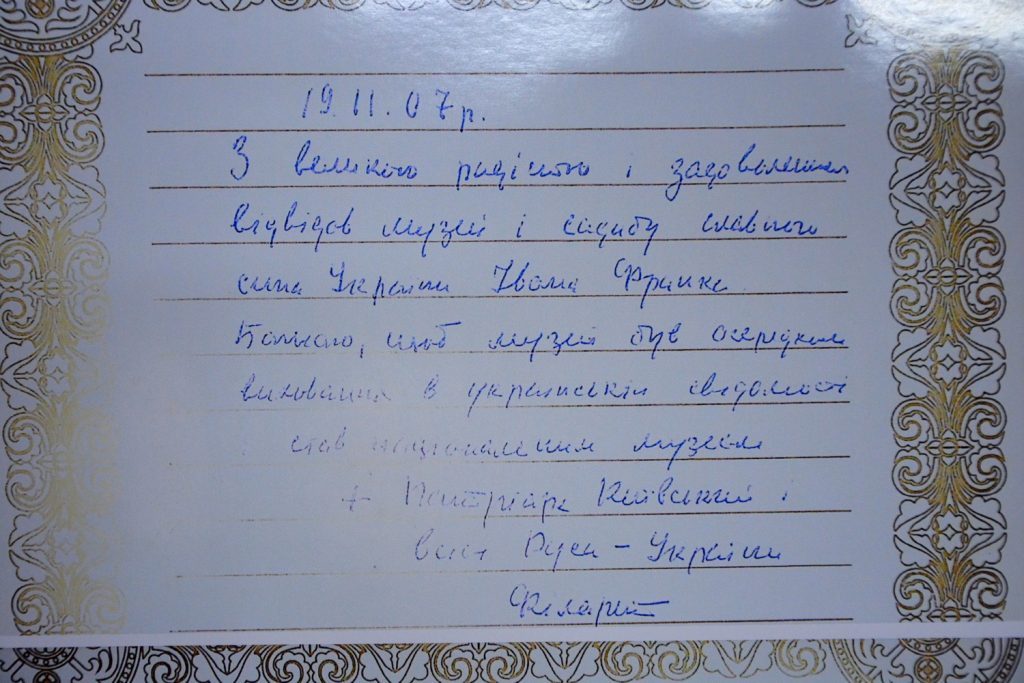 19.11.07р.
З великою радістю і задоволенням
відвідав музей і садибу славного
сина України Івана Франка.
Бажаю, щоб музей був осередком
виховання в українській свідомості
став національним музеєм
+ Патріарх Київський і
всієї Руси-України
Філарет